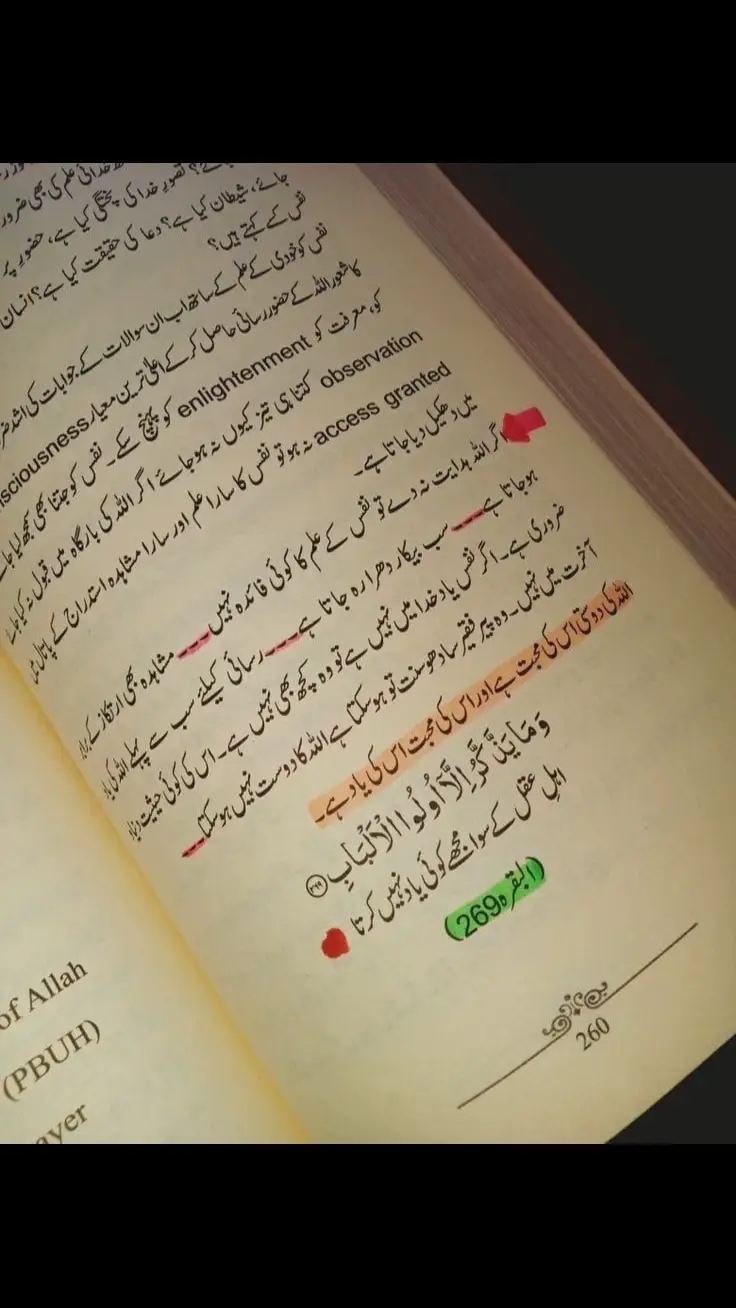 خدائی علم کی بھی ضرور
تصورِ خدا کی پختگی کیا ہے، حضور پر
جائے، شیطان کیا ہے؟ دعا کی حقیقت کیا ہے؟ انسان
نفس کسے کہتے ہیں؟
نفس کو خودی کے علم کے ساتھ اب ان سوالات کے جوابات کی اشد ضر
کا شعور اللہ کے حضور رسائی حاصل کر کے اعلیٰ ترین معیار sciousness
کو، معرفت کو enlightenment کو پہنچ سکے۔ نفس کو جتنا بھی سمجھ لیا جائے
observation کتنا ہی تیز کیوں نہ ہو جائے اگر اللہ کی بارگاہ میں قبول نہ کیا جائے
access granted نہ ہو تو نفس کا سارا علم اور سارا مشاہدہ استدراج کے پاتال میں
میں دھکیل دیا جاتا ہے۔
اگر اللہ ہدایت نہ دے تو نفس کے علم کا کوئی فائدہ نہیں۔۔۔ مشاہدہ بھی ارتکاز کے برابر
ہو جاتا ہے۔۔۔ سب بیکار دھرا رہ جاتا ہے۔۔۔ رسائی کیلئے سب سے پہلے اللہ کی یاد
ضروری ہے۔ اگر نفس یادِ خدا میں نہیں ہے تو وہ کچھ بھی نہیں ہے۔ اس کی کوئی حیثیت دنیا و
آخرت میں نہیں۔ وہ پیر فقیر سادھو سنت تو ہو سکتا ہے اللہ کا دوست نہیں ہو سکتا۔۔۔
اللہ کی دوستی اس کی محبت ہے اور اس کی محبت اس کی یاد ہے۔
وَمَا يَذَّكَّرُ اِلَّاۤ اُولُوا الْاَلْبَابِ ﴿۲۶۹﴾
اہلِ عقل کے سوا مجھے کوئی یاد نہیں کرتا
(البقرہ269)
260
of Allah
(PBUH)
ayer